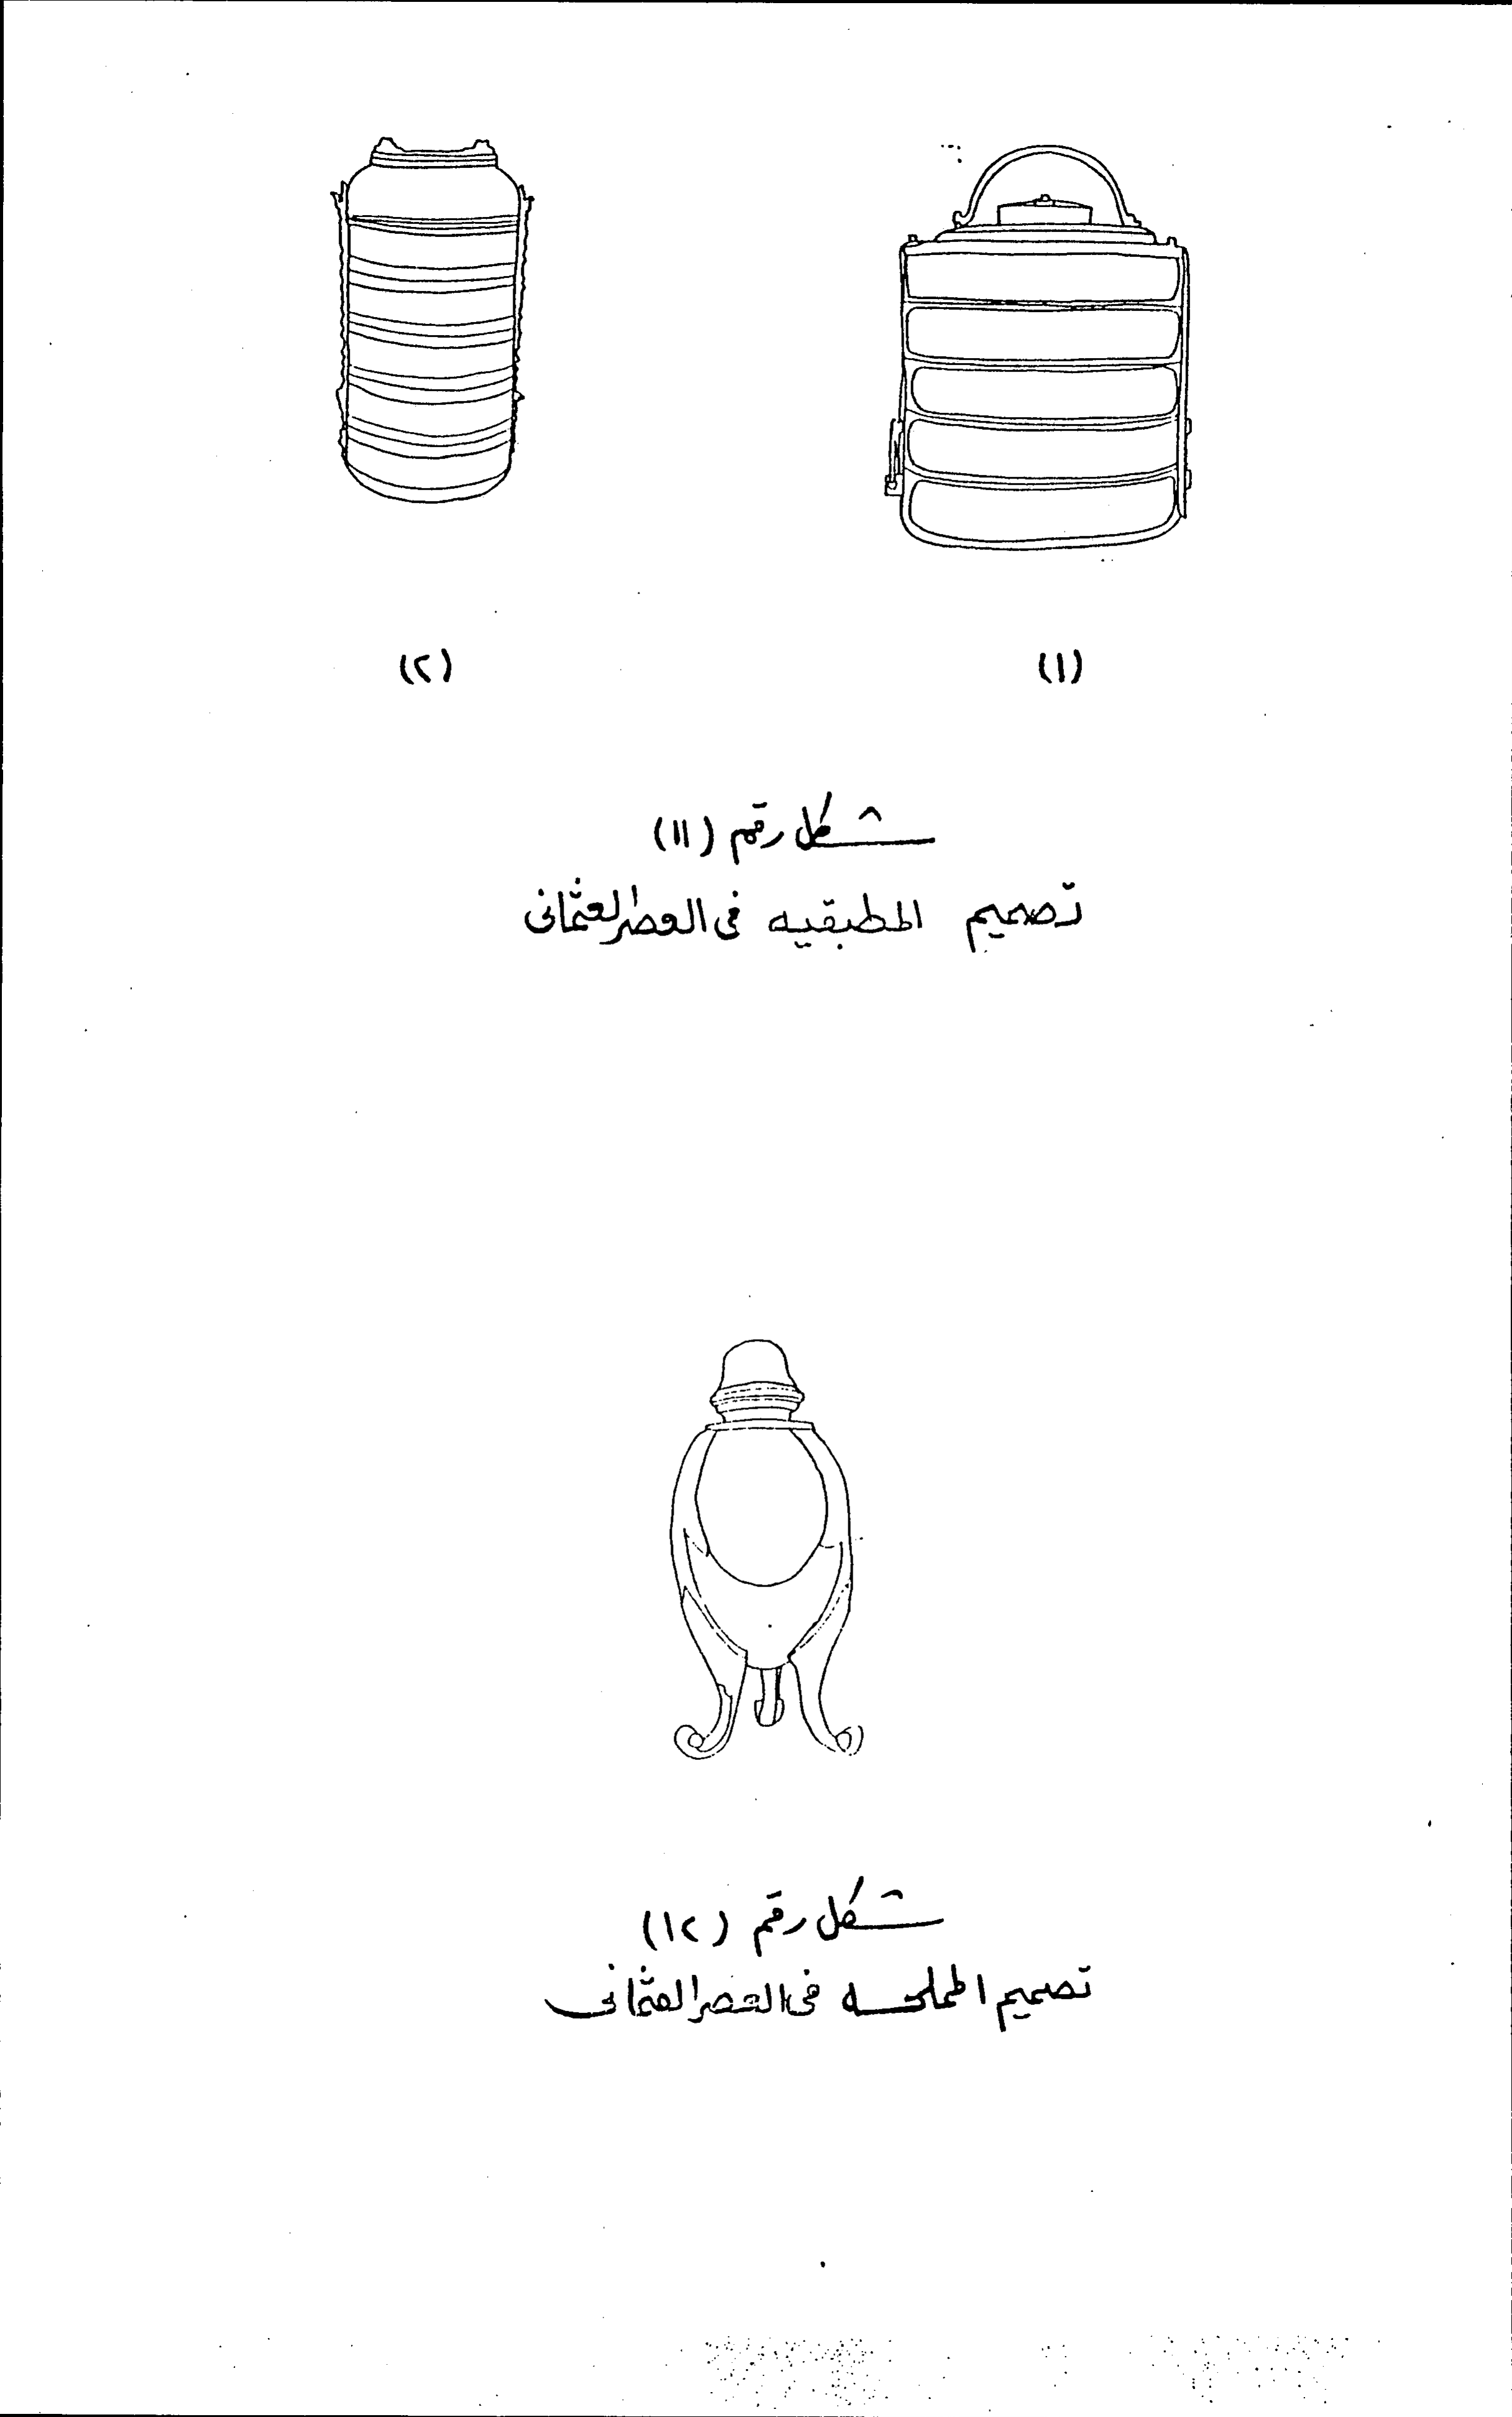 (١) (٢)
شكل رقم (١١)
تصميم المطبقيه فى العصر العثمانى
شكل رقم (١٢)
تصميم المملحه فى العصر العثمانى